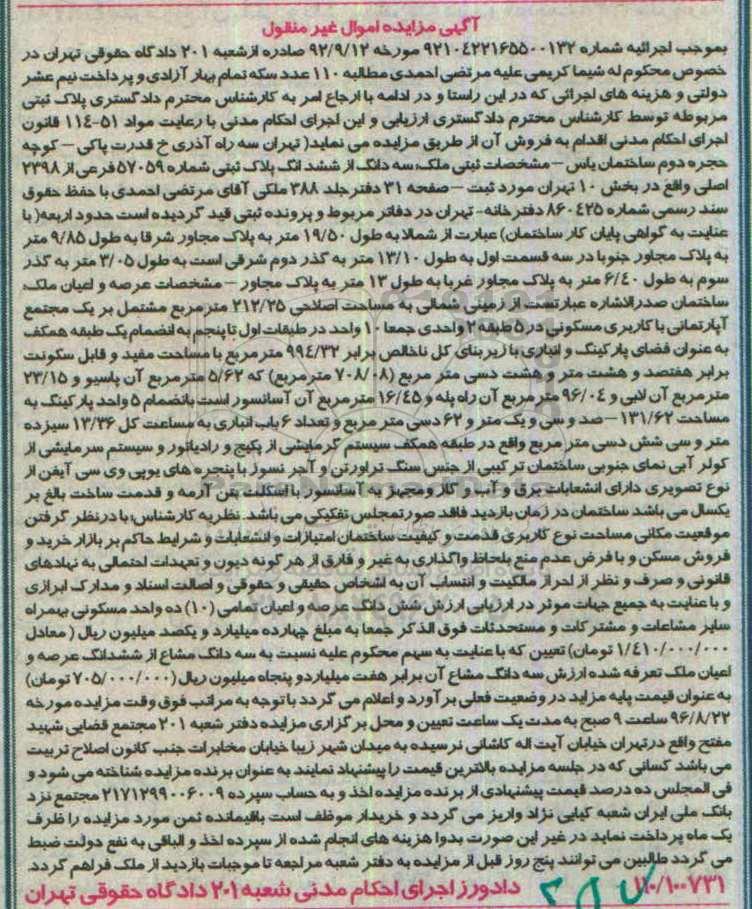 آگهی مزایده اموال غیر منقول
بموجب اجرائیه شماره ۹۲۱۰۴۲۲۱۶۵۵۰۰۱۳۲ مورخه ۹۲/۹/۱۲ صادره ازشعبه ۲۰۱ دادگاه حقوقی تهران در
خصوص محکوم له شیما کریمی علیه مرتضی احمدی مطالبه ۱۱۰ عدد سکه تمام بهار آزادی و پرداخت نیم عشر
دولتی و هزینه های اجرائی که در این راستا و در ادامه با ارجاع امر به کارشناس محترم دادگستری پلاک ثبتی
مربوطه توسط کارشناس محترم دادگستری ارزیابی و این اجرای احکام مدنی با رعایت مواد ۵۱-۱۱۴ قانون
اجرای احکام مدنی اقدام به فروش آن از طریق مزایده می نماید( تهران سه راه آذری خ قدرت پاکی – کوچه
حجره دوم ساختمان یاس – مشخصات ثبتی ملک: سه دانگ از ششد انگ پلاک ثبتی شماره ۵۷۰۵۹ فرعی از ۲۳۹۸
اصلی واقع در بخش ۱۰ تهران مورد ثبت – صفحه ۳۱ دفتر جلد ۳۸۸ ملکی آقای مرتضی احمدی با حفظ حقوق
سند رسمی شماره ۸۶۰۴۲۵ دفترخانه- تهران در دفاتر مربوط و پرونده ثبتی قید گردیده است حدود اربعه( با
عنایت به گواهی پایان کار ساختمان) عبارت از شمالا به طول ۱۹/۵۰ متر به پلاک مجاور شرقا به طول ۹/۸۵ متر
به پلاک مجاور جنوبا در سه قسمت اول به طول ۱۳/۱۰ متر به گذر دوم شرقی است به طول ۳/۰۵ متر به گذر
سوم به طول ۶/۴۰ متر به پلاک مجاور غربا به طول ۱۳ متر به پلاک مجاور – مشخصات عرصه و اعیان ملک:
ساختمان صدرالاشاره عبارتست از زمینی شمالی به مساحت اصلاحی ۲۱۲/۲۵ مترمربع مشتمل بر یک مجتمع
آپارتمانی با کاربری مسکونی در ۵ طبقه ۲ واحدی جمعا ۱۰ واحد در طبقات اول تا پنجم به انضمام یک طبقه همکف
به عنوان فضای پارکینگ و انباری با زیربنای کل ناخالص برابر ۹۹۴/۳۲ مترمربع با مساحت مفید و قابل سکونت
برابر هفتصد و هشت متر و هشت دسی متر مربع (۷۰۸/۰۸ مترمربع) که ۵/۶۲ مترمربع آن پاسیو و ۲۳/۱۵
مترمربع آن لابی و ۹۶/۰۴ مترمربع آن راه پله و ۱۶/۴۵ مترمربع آن آسانسور است بانضمام ۵ واحد پارکینگ به
مساحت ۱۳۱/۶۲ – صد و سی و یک متر و ۶۲ دسی متر مربع و تعداد ۶ باب انباری به مساعت کل ۱۳/۳۶ سیزده
متر و سی شش دسی متر مربع واقع در طبقه همکف سیستم گرمایشی از پکیج و رادیاتور و سیستم سرمایشی از
کولر آبی نمای جنوبی ساختمان ترکیبی از جنس سنگ تراورتن و آجر نسوز با پنجره های یوپی وی سی آیفن از
نوع تصویری دارای انشعابات برق و آب و گاز ومجهز به آسانسور با اسکلت بتن آرمه و قدمت ساخت بالغ بر
یکسال می باشد ساختمان در زمان بازدید فاقد صورتمجلس تفکیکی می باشد. نظریه کارشناس: با درنظر گرفتن
موقعیت مکانی مساحت نوع کاربری قدمت و کیفیت ساختمان امتیازات و انشعابات و شرایط حاکم بر بازار خرید و
فروش مسکن و با فرض عدم منع بلحاظ واگذاری به غیر و فارق از هر گونه دیون و تعهدات احتمالی به نهادهای
قانونی و صرف و نظر از احراز مالکیت و انتساب آن به اشخاص حقیقی و حقوقی و اصالت اسناد و مدارک ابرازی
و با عنایت به جمیع جهات موثر در ارزیابی ارزش شش دانگ عرصه و اعیان تمامی (۱۰) ده واحد مسکونی بهمراه
سایر مشاعات و مشترکات و مستحدثات فوق الذکر جمعا به مبلغ چهارده میلیارد و یکصد میلیون ریال ( معادل
۱/۴۱۰/۰۰۰/۰۰۰ تومان) تعیین که با عنایت به سهم محکوم علیه نسبت به سه دانگ مشاع از ششدانگ عرصه و
اعیان ملک تعرفه شده ارزش سه دانگ مشاع آن برابر هفت میلیارد و پنجاه میلیون ریال (۷۰۵/۰۰۰/۰۰۰ تومان)
به عنوان قیمت پایه مزاید در وضعیت فعلی برآورد و اعلام می گردد با توجه به مراتب فوق وقت مزایده مورخه
۹۶/۸/۲۲ ساعت ۹ صبح به مدت یک ساعت تعیین و محل برگزاری مزایده دفتر شعبه ۲۰۱ مجتمع قضایی شهید
مفتح واقع درتهران خیابان آیت اله کاشانی نرسیده به میدان شهر زیبا خیابان مخابرات جنب کانون اصلاح تربیت
می باشد کسانی که در جلسه مزایده بالاترین قیمت را پیشنهاد نمایند به عنوان برنده مزایده شناخته می شود و
فی المجلس ده درصد قیمت پیشنهادی از برنده مزایده اخذ و به حساب سپرده ۲۱۷۱۲۹۹۰۰۶۰۰۹ مجتمع نزد
بانک ملی ایران شعبه کیایی نژاد واریز می گردد و خریدار موظف است باقیمانده ثمن مورد مزایده را ظرف
یک ماه پرداخت نماید در غیر این صورت بدوا هزینه های انجام شده از سپرده اخذ و الباقی به نفع دولت ضبط
می گردد طالبین می توانند پنج روز قبل از مزایده به دفتر شعبه مراجعه تا موجبات بازدید از ملک فراهم گردد.
۱۱۰/۱۰۰۷۳۱ دادورز اجرای احکام مدنی شعبه ۲۰۱ دادگاه حقوقی تهران